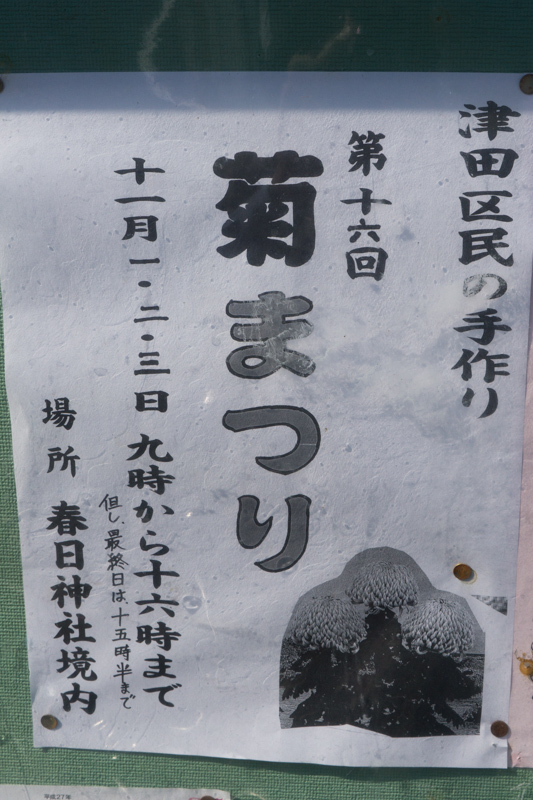 津田区民の手作り
第十六回
菊まつり
十一月一・二・三日 九時から十六時まで
但し、最終日は、十五時半まで
場所 春日神社境内
平成27年